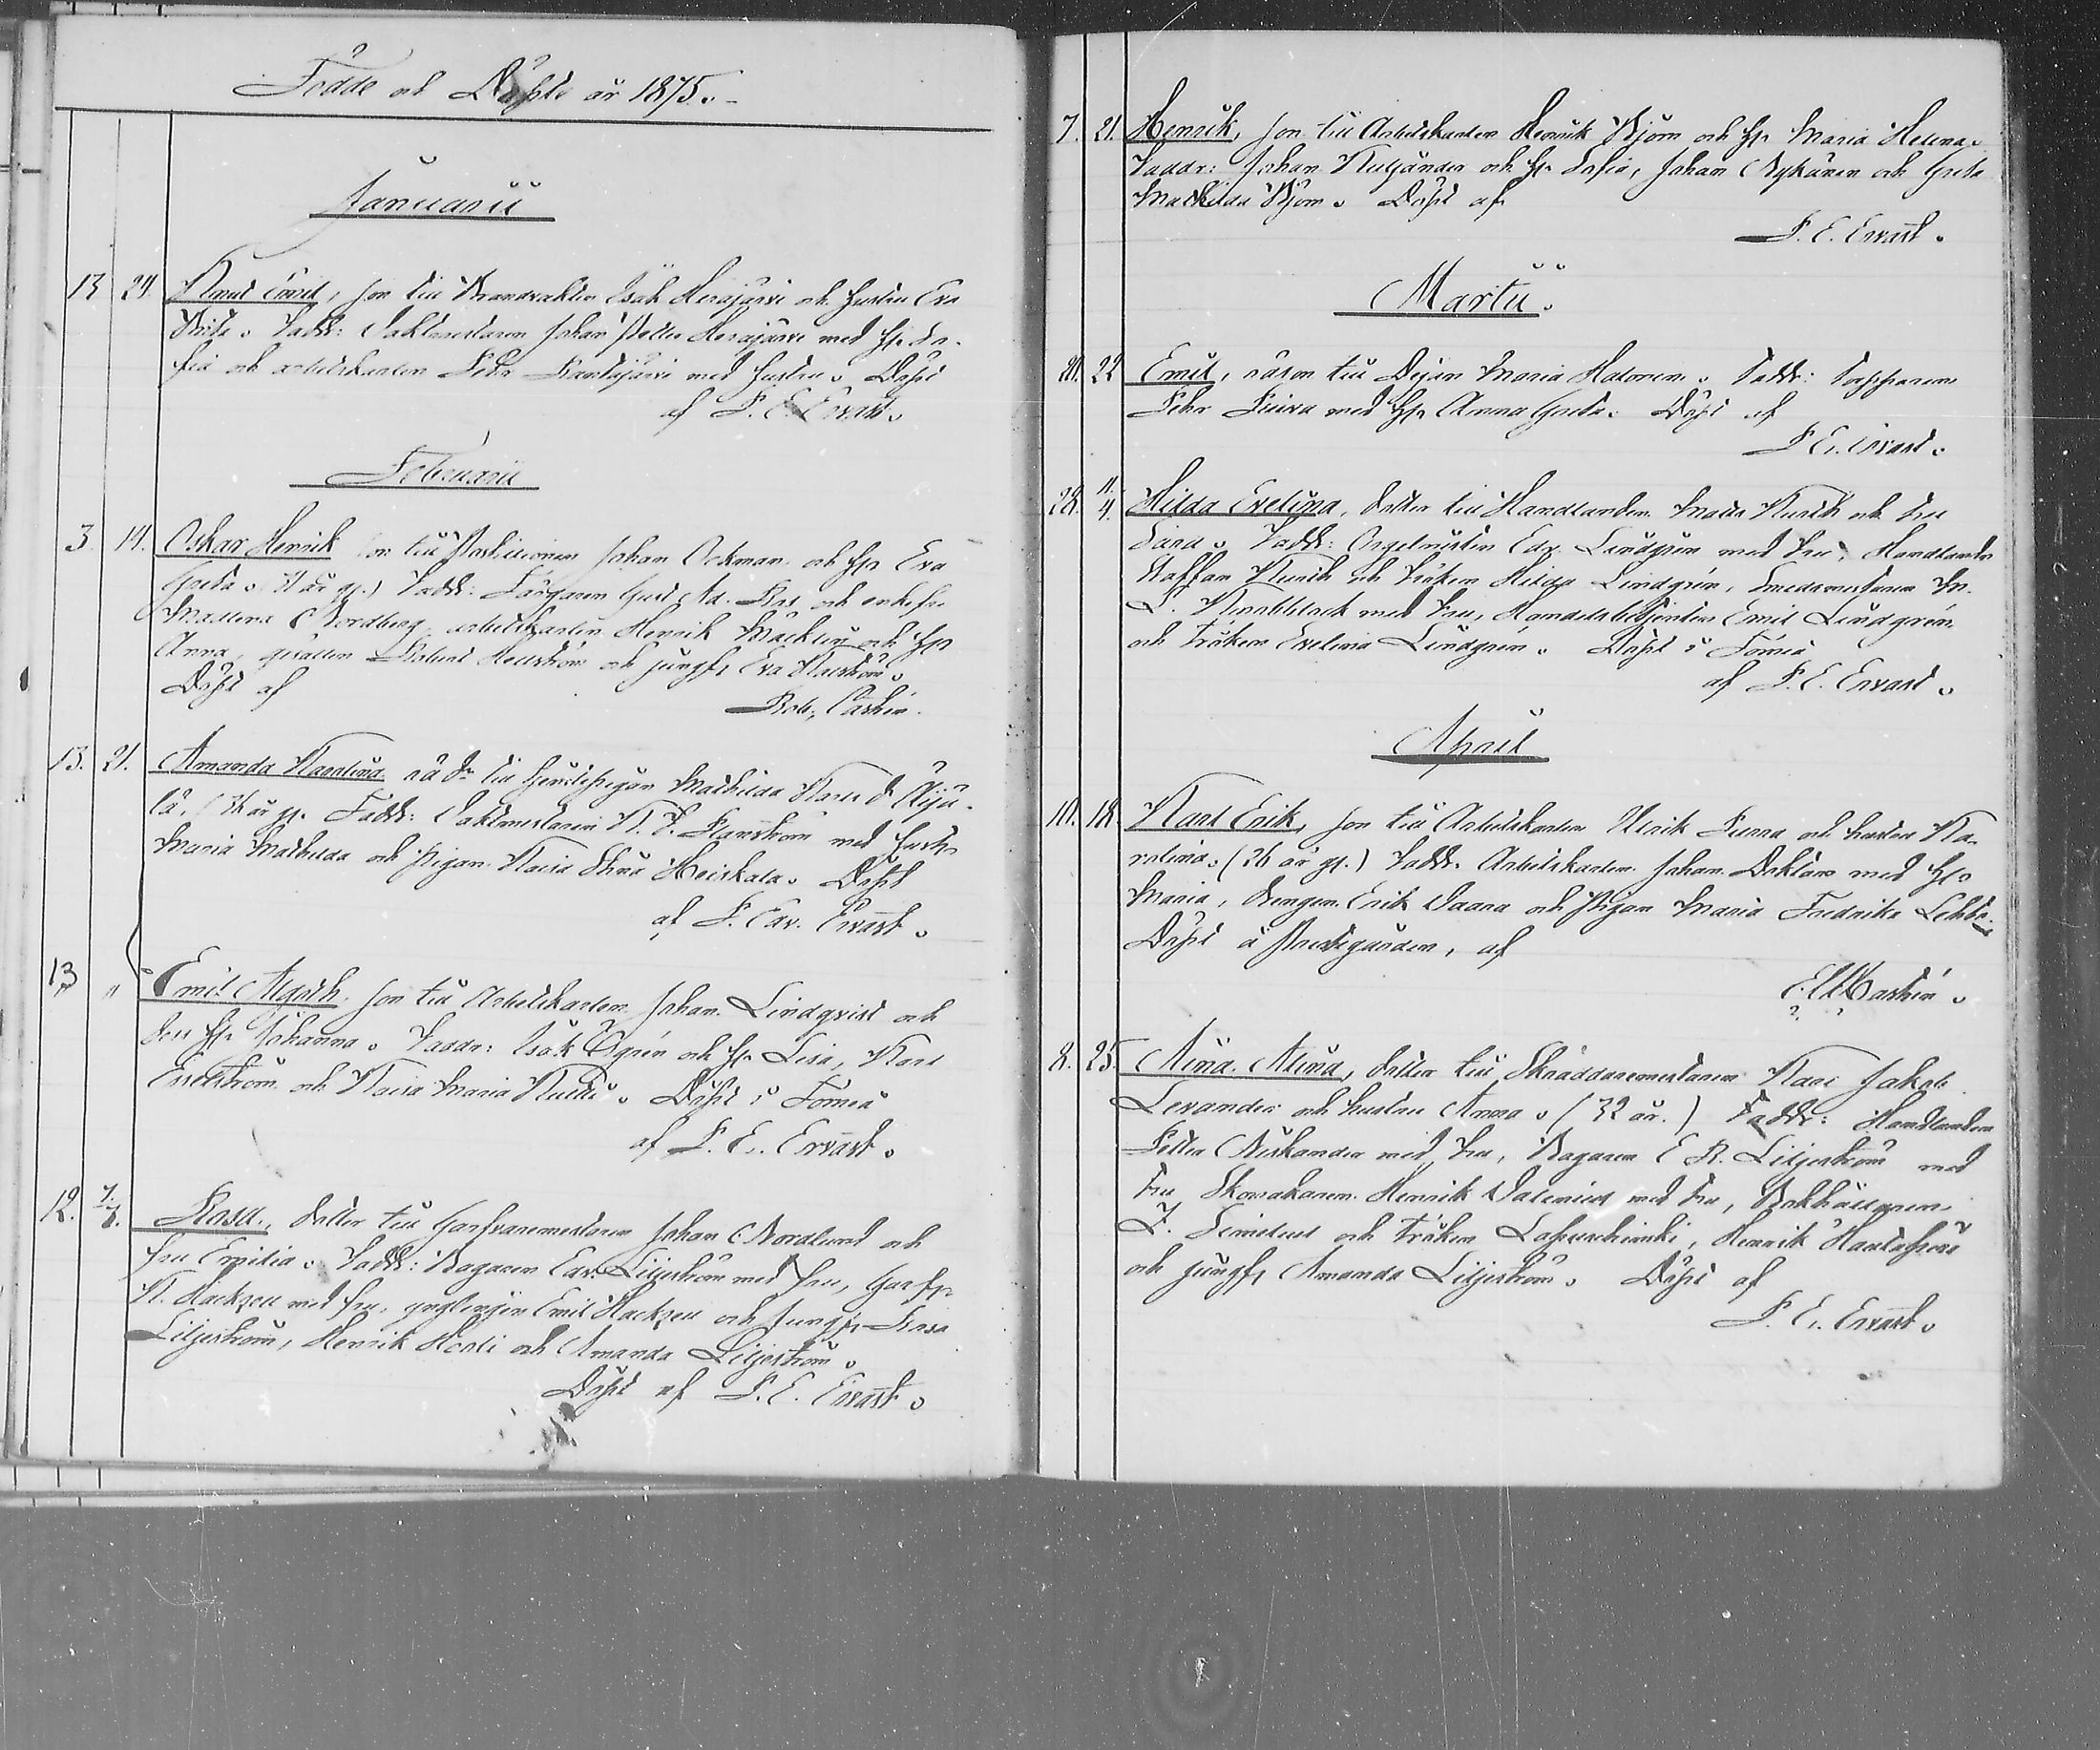 Födde och Döpte år 1875.
Januarii
13 24. Knut Emil, son till Brandvakten Isak Herajärvi och hustru Eva
Brita. Fadd: Vaktmästaren Johan Petter Herajärvi med h. So-
fia och arbetskarlen Petter Rantajärvi med hustru. Döpt
af P. E. Ervast.
Februarii
3 14. Oskar Henrik son till Postiljonen Johan Ockman och h. Eva
Greta. år g.) Fadd: Färgaren Gust. Ad. Ros och enkefru
Madlena Nordberg, arbetskarlen Henrik Mäcklin och h.
Anna, gesällen Robert Hellström och jungf. Eva
Döpt af
Rob. Castrén.
13. 21. Amanda Karolina oä d. till Inhysespigan Mathilda Karls d.
år g. Fadd: Vaktmästaren K. F. med hustr.
Maria Mathilda och pigan Kaisa Stina Heiskala. Döpt
af P. Edv. Ervast.
13 " Emil Algoth, son till Arbetskarlen Johan Lindqvist och
des h. Johanna. Faddr: Isak Ögrén och h. Lisa, Karl
Engström och Kaisa Maria Döpt i Torneå
af P. E. Ervast.
12. 7. Rosa, dotter till Garfvaremästaren Johan Nordlund och
fru Emilia. Fadd: Bagaren Edv. Liljeström med fru, Garfv.
K. Hackzell med fru, ynglingen Emil Hackzell och Jungfr. Rosa
Liljeström, Henrik och Amanda Liljeström.
Döpt af P. E. Ervast.
7. 21. Henrik, son till Arbetskarlen Henrik Björn och h. Maria Helena.
Faddr: Johan och h. Sofia, Johan Nykänen och Greta
Mathilda Björn. Döpt af
P. E. Ervast.
Martii.
20. 22 Emil, oä son till Dejan Maria Halonen. Fadd: Torpparen
Petter med h. Anna Greta. Döpt af
P. E. Ervast.
28. 11. 4. Hilda Evelina, dotter till Handlanden Mats Kurth och fru
Sara. Fadd: Orgelnisten Edv. Lindgrén med fru, Handlanden
Staffan Kurth och fröken Hilda Lindgrén, Smedmästaren M.
L. med fru, Handelsbetjenten Emil Lindgrén
och fröken Evelina Lindgrén. Döpt i Torneå
af P. E. Ervast.
April
10. 18. Karl Erik, son till Arbetskarlen Ulrik Purra och hustru Ka-
rolina. (26 år g.) Fadd. Arbetskarlen Johan med h.
Maria, drengen Erik Vaara och Pigan Maria Fredrika Lehto.
Döpt å Prestgården, af
Castrén.
8. 25. Aina Alina, dotter till Skräddaremästaren Karl Jakob
Levander och hustru Anna. (32 år.) Fadd: Handlanden
Petter Niskander med fru, Bagaren E R. Liljeström med
fru Skomakaren Henrik Valenius med fru, Bokhållaren
F. och fröken Henrik
och jungf. Amanda Liljeström. Döpt af
P. E. Ervast.